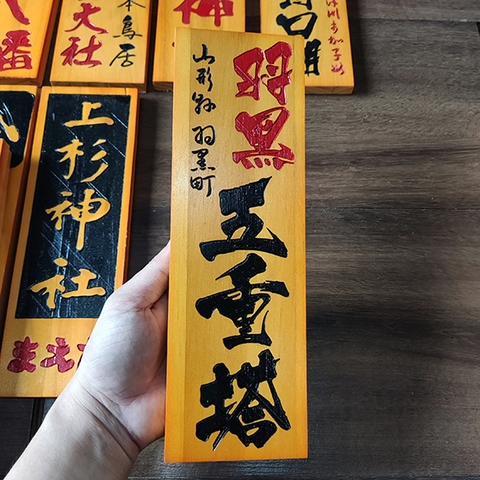 本鳥居
大社
神
羽黒
山形縣 羽黒町
五重塔
上杉神社